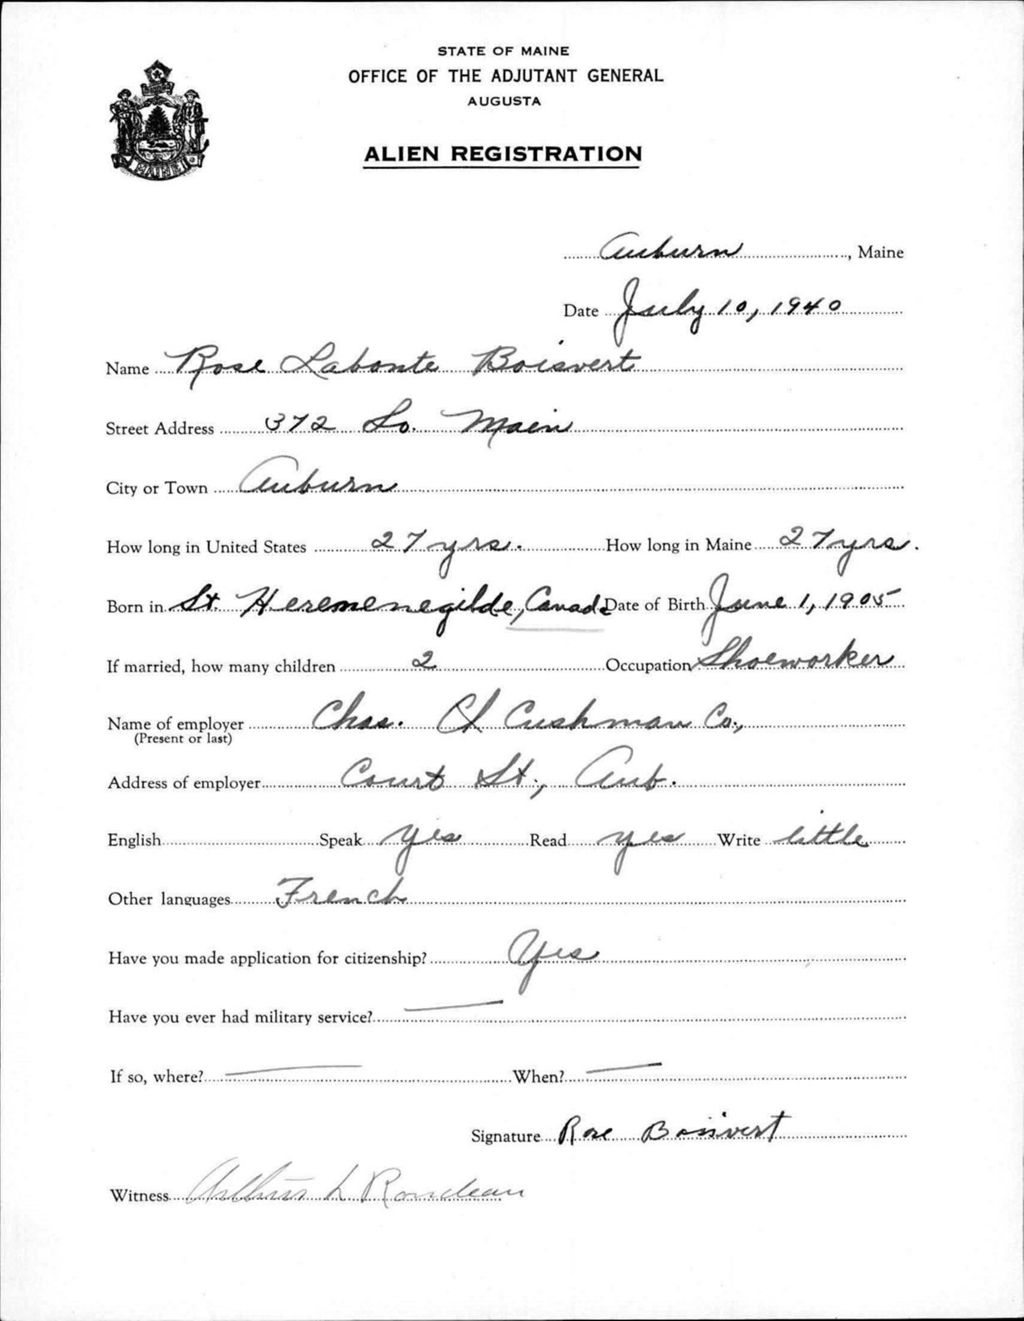 STATE OF MAINE
OFFICE OF THE ADJUTANT GENERAL
AUGUSTA
ALIEN REGISTRATION
MAINE
Auburn, Maine
Date July 10, 1940
Name Rose Labonte Boisvert
Street Address 372 So. Main
City or Town Auburn
How long in United States 27 yrs. How long in Maine 27 yrs.
Born in St. Heremenegilde, Canada Date of Birth June 1, 1905
If married, how many children 2 Occupation Shoeworker
Name of employer Chas. Cushman Co.,
(Present or last)
Address of employer Court St., Aub.
English Speak yes Read yes Write little
Other languages French
Have you made application for citizenship? Yes
Have you ever had military service? —
If so, where? — When? —
Signature Rose Boisvert
Witness Arthur L Rondeau